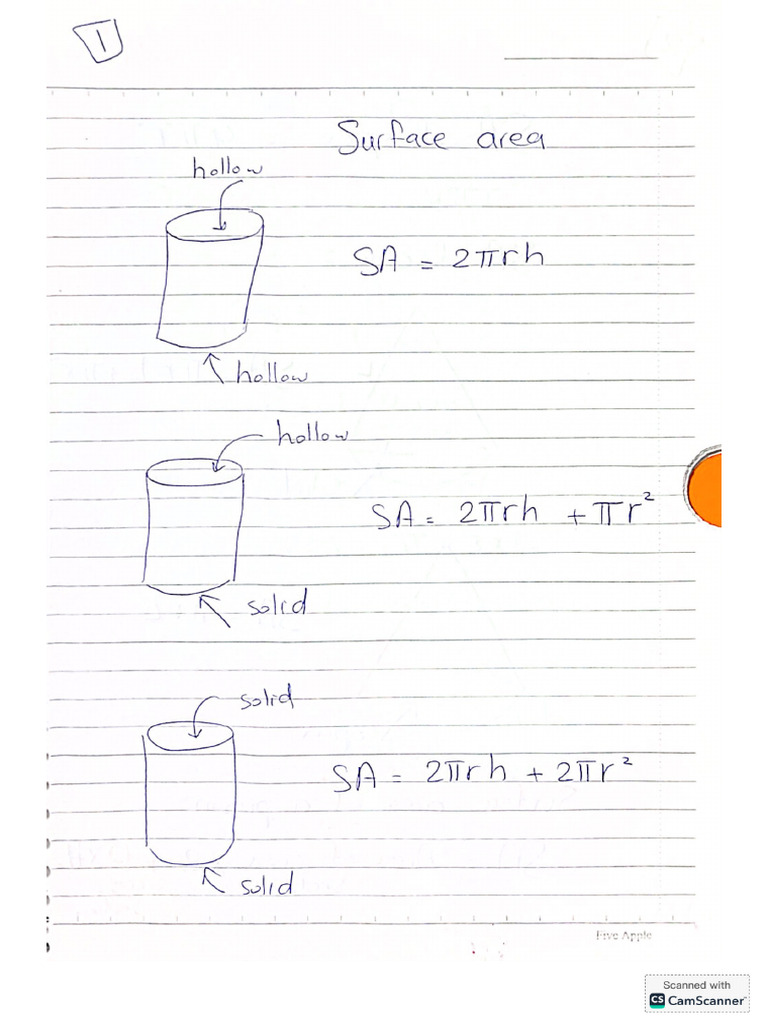 1
Surface area
hollow
SA = 2πrh
hollow
hollow
SA = 2πrh + πr²
solid
solid
SA = 2πrh + 2πr²
solid
Five Apple
Scanned with
CS CamScanner